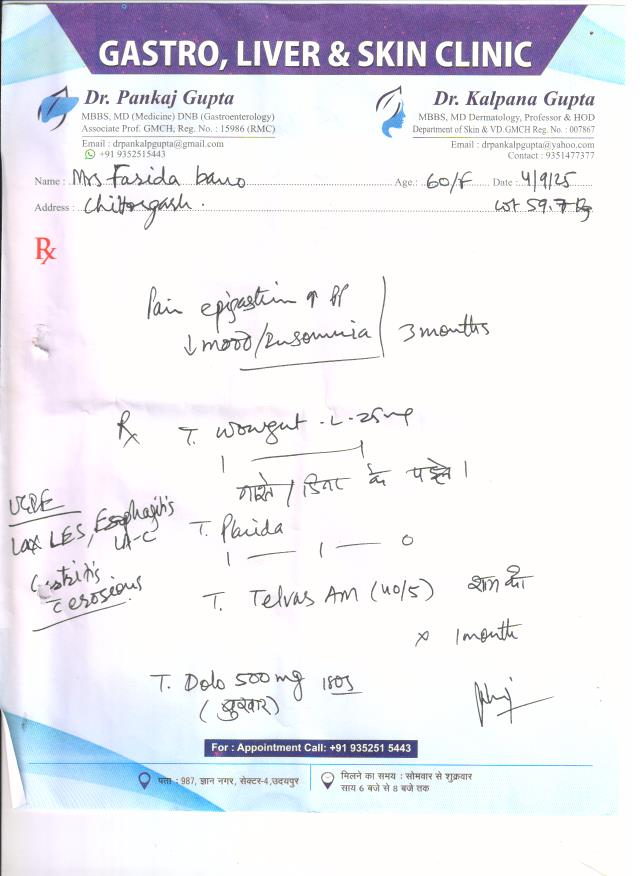 GASTRO, LIVER & SKIN CLINIC
Dr. Pankaj Gupta
MBBS, MD (Medicine) DNB (Gastroenterology)
Associate Prof. GMCH, Reg. No. : 15986 (RMC)
Email : drpankalpgupta@gmail.com
+91 9352515443
Dr. Kalpana Gupta
MBBS, MD Dermatology, Professor & HOD
Department of Skin & VD.GMCH Reg. No. : 007867
Email : drpankalpgupta@yahoo.com
Contact : 9351477377
Name : Mrs Farida bano Age.: 60/F Date : 4/9/25
Address : Chittorgarh. wt 59.7 kg
Rx
Pain epigastrium ↑ BP
↓ mood/Insomnia 3 months
Rx T. Wowgut-L-25mg
1 — 1
नाश्ते / डिनर के पहले।
UGIE
Lax LES, Esophagitis
LA-C
Gastritis
c erosions
T. Placida
1 — 1 — 0
T. Telvas AM (40/5) शाम को
x 1 month
T. Dolo 500mg SOS
(बुखार)
For : Appointment Call: +91 935251 5443
पता : 987, ज्ञान नगर, सेक्टर-4,उदयपुर
मिलने का समय : सोमवार से शुक्रवार
साय 6 बजे से 8 बजे तक